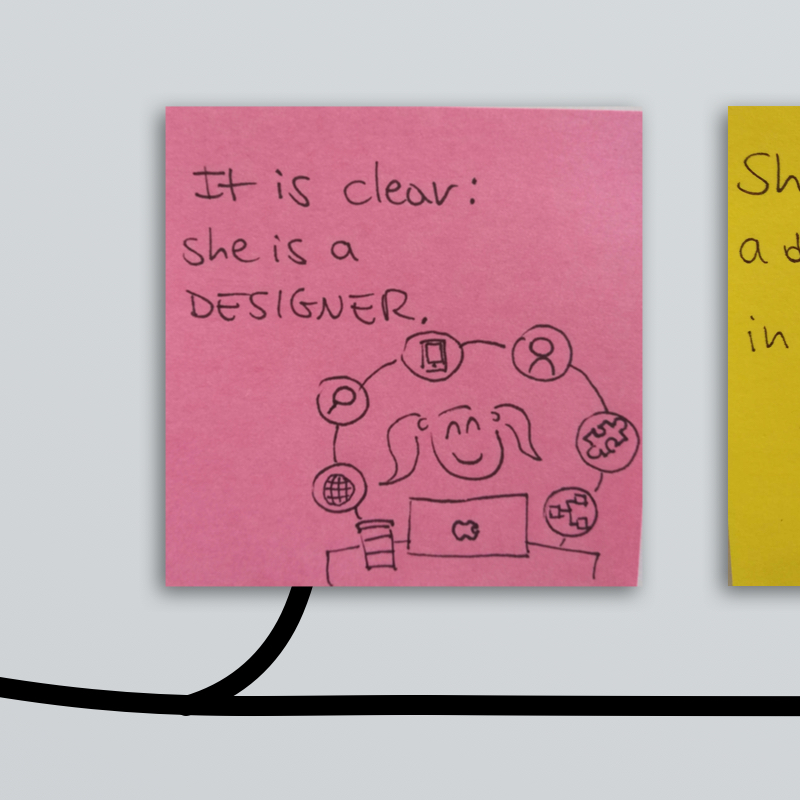 It is clear:
she is a
DESIGNER.
a
in